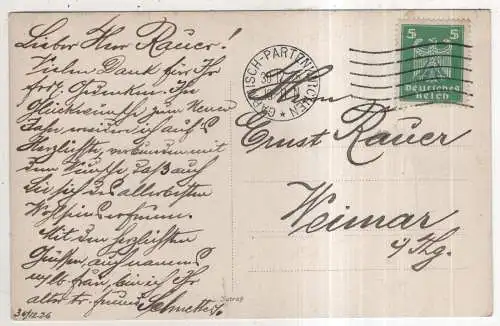 Lieber Herr Rauer!
Vielen Dank für Ihr
frdl. Gedenken. Die
Glückwünsche zum Neuen
Jahr erwidere ich aufs
Herzlichste, verbunden mit
dem Wunsche, daß auch
Sie sich des allerbesten
Wohlseins erfreuen.
Mit den herzlichsten
Grüßen, auch namens
m/lb. Frau, bin ich Ihr
alter tr. Freund
30/12.26
GARMISCH-PARTENKIRCHEN
5 5
Deutsches
Reich
Herrn
Ernst Rauer
Weimar
i/Thg.